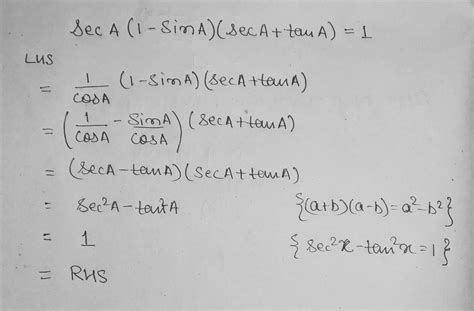 Sec A (1 - Sin A)(Sec A + tan A) = 1
LHS
= 1/COSA (1 - Sin A) (Sec A + tan A)
= (1/COSA - Sin A/COSA) (Sec A + tan A)
= (Sec A - tan A)(Sec A + tan A)
= Sec²A - tan²A {(a+b)(a-b) = a²-b²}
= 1 {Sec²x - tan²x = 1}
= RHS